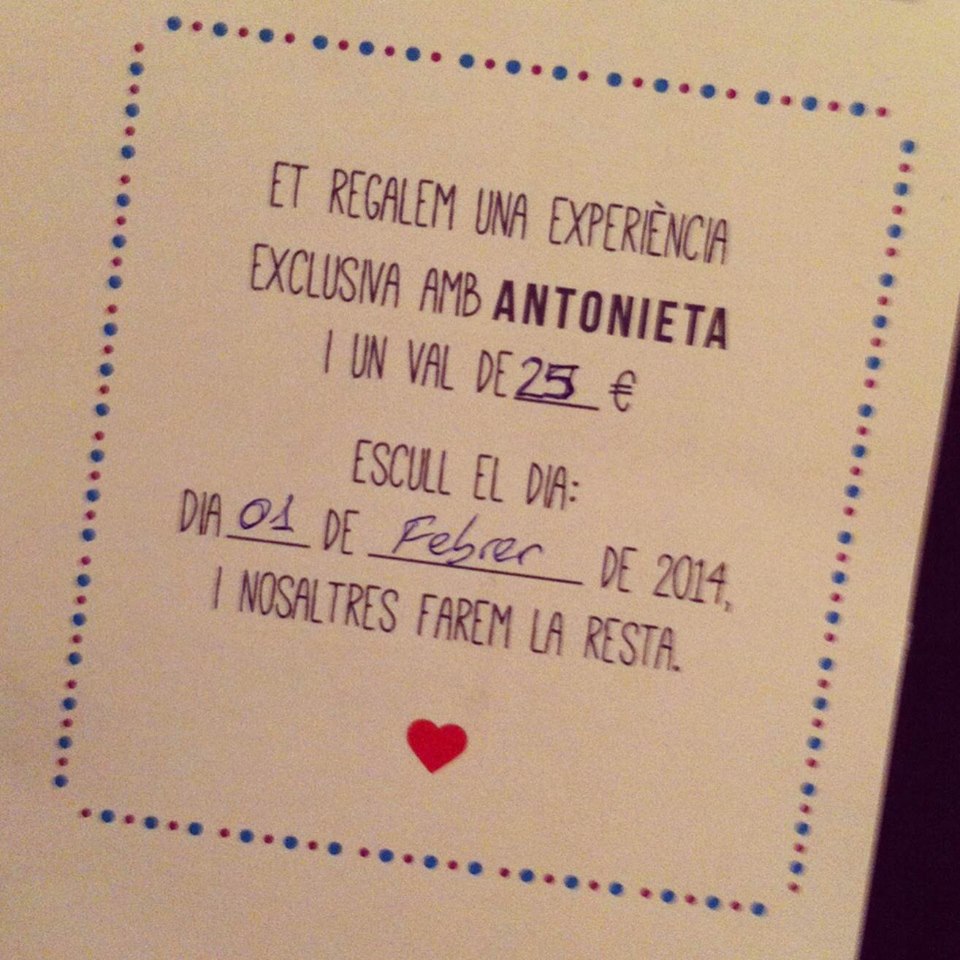 ET REGALEM UNA EXPERIÈNCIA
EXCLUSIVA AMB ANTONIETA
I UN VAL DE 25 €
ESCULL EL DIA:
DIA 01 DE Febrer DE 2014,
I NOSALTRES FAREM LA RESTA.